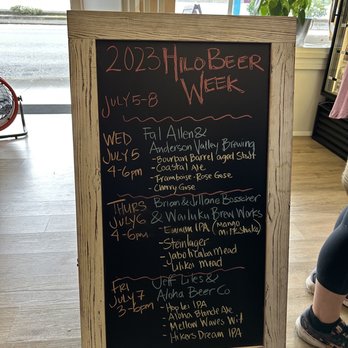 2023 HILO BEER
WEEK
JULY 5-8
WED
JULY 5
4-6pm
Fal Allen &
Anderson Valley Brewing
- Bourbon Barrel aged Stout
- Coastal Ale
- Framboise-Rose Gose
- Cherry Gose
THURS
JULY 6
4-6pm
Brian & Jillane Bosscher
& Wailuku Brew Works
- Eminum IPA (Mango
Milkshake)
- Steinlager
- Jaboticaba mead
- Lilikoi mead
FRI
JULY 7
3-6pm
Jeff Liles &
Aloha Beer Co
- Hop Lei IPA
- Aloha Blonde Ale
- Mellow Waves Wit
- Hikers Dream IPA